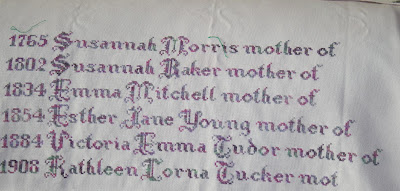 1765 Susannah Morris mother of
1802 Susannah Baker mother of
1834 Emma Mitchell mother of
1854 Esther Jane Young mother of
1884 Victoria Emma Tudor mother of
1908 Kathleen Lorna Tucker mot